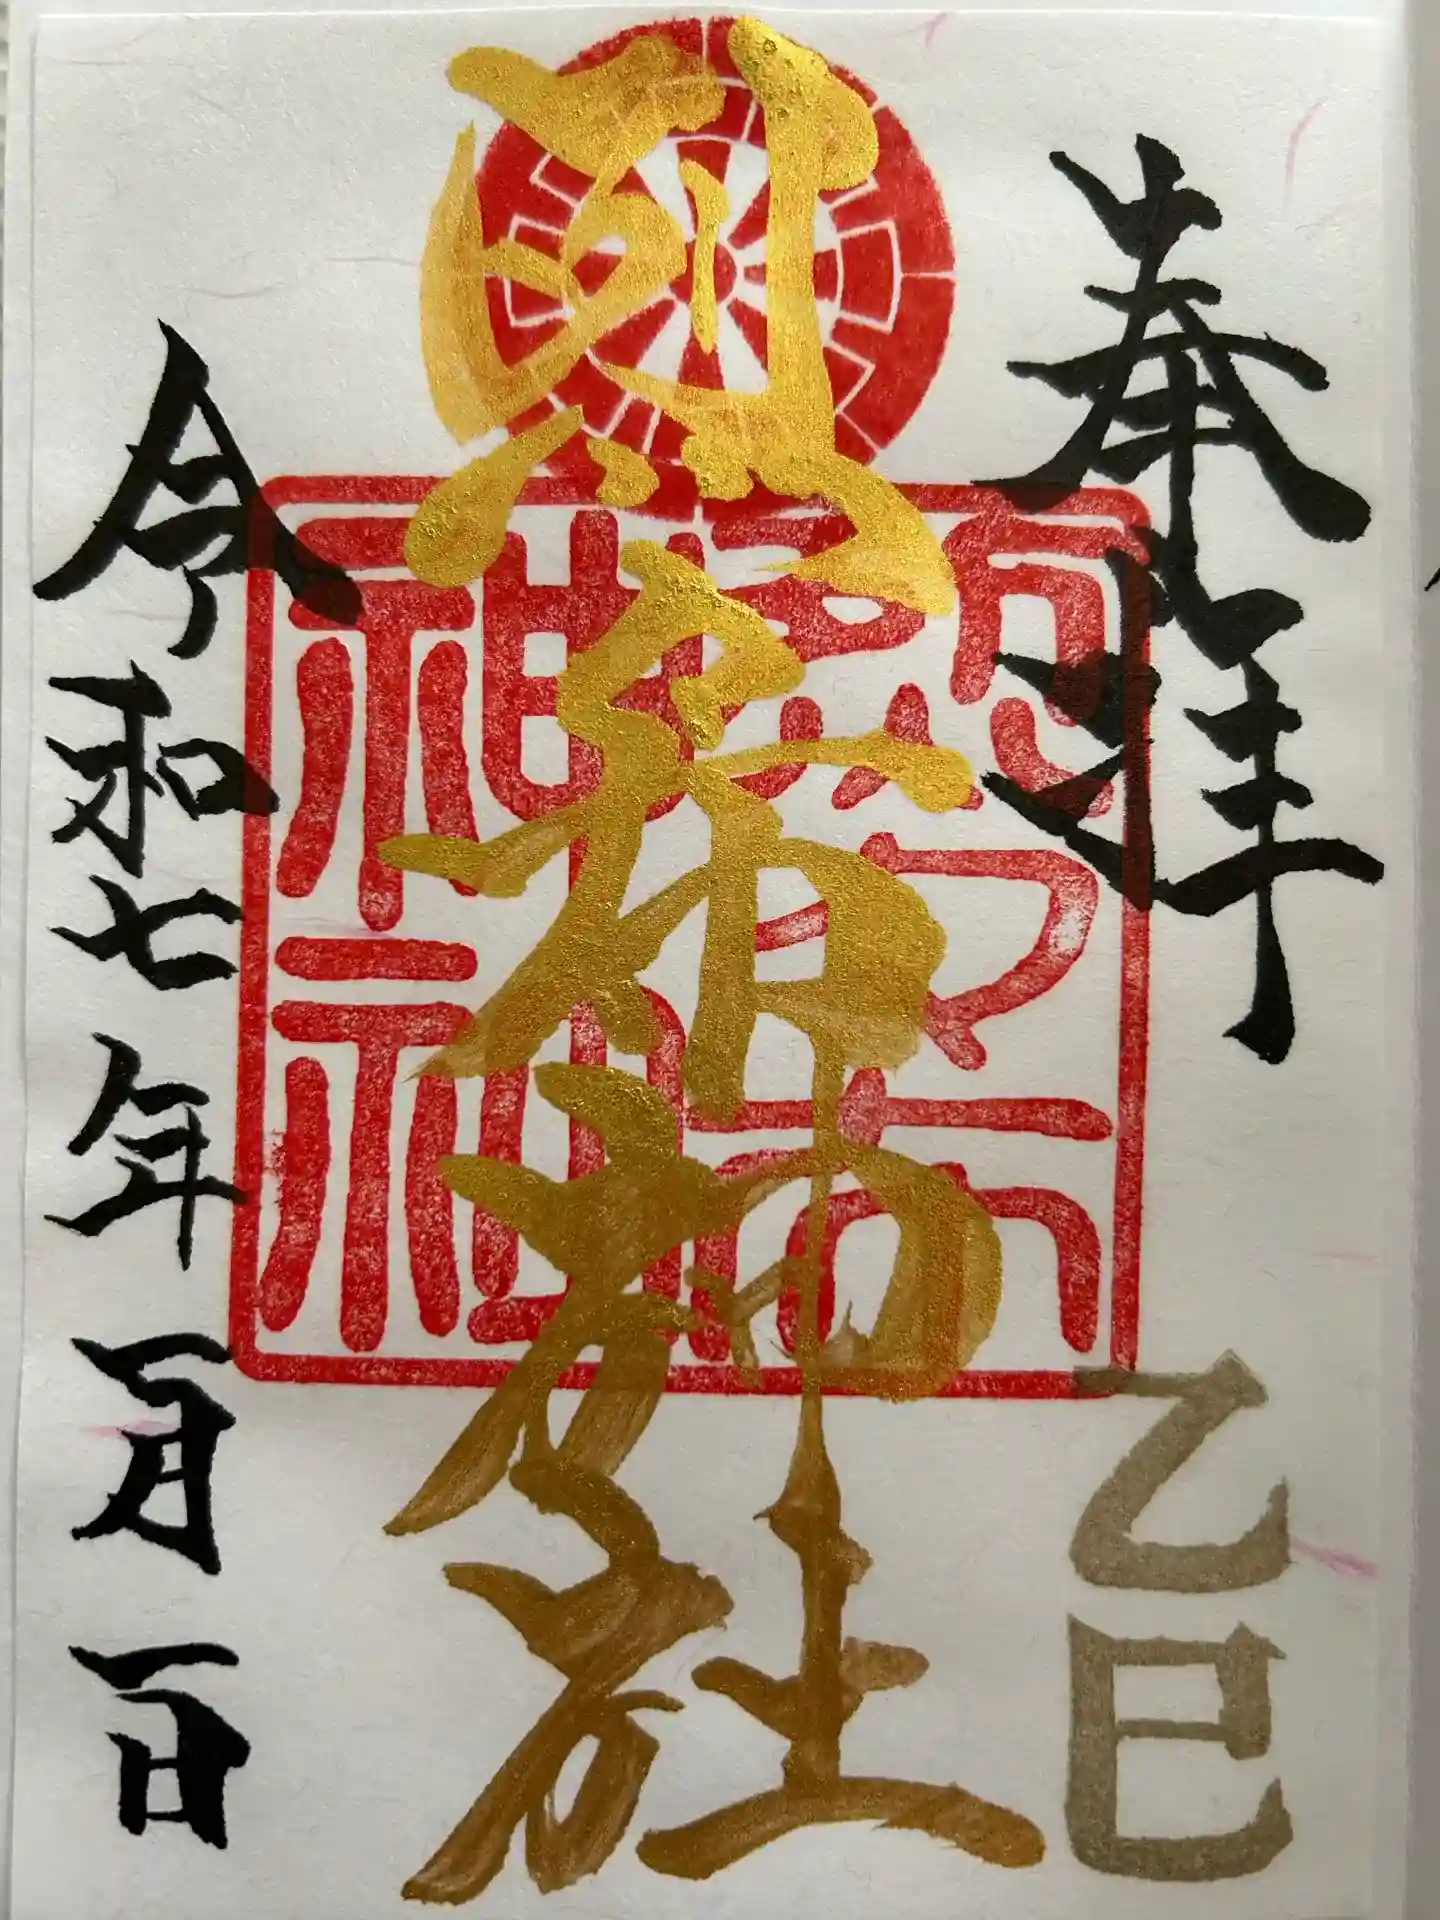 奉拝
乙巳
烈々布神社
烈々布
神社
令和七年一月一日